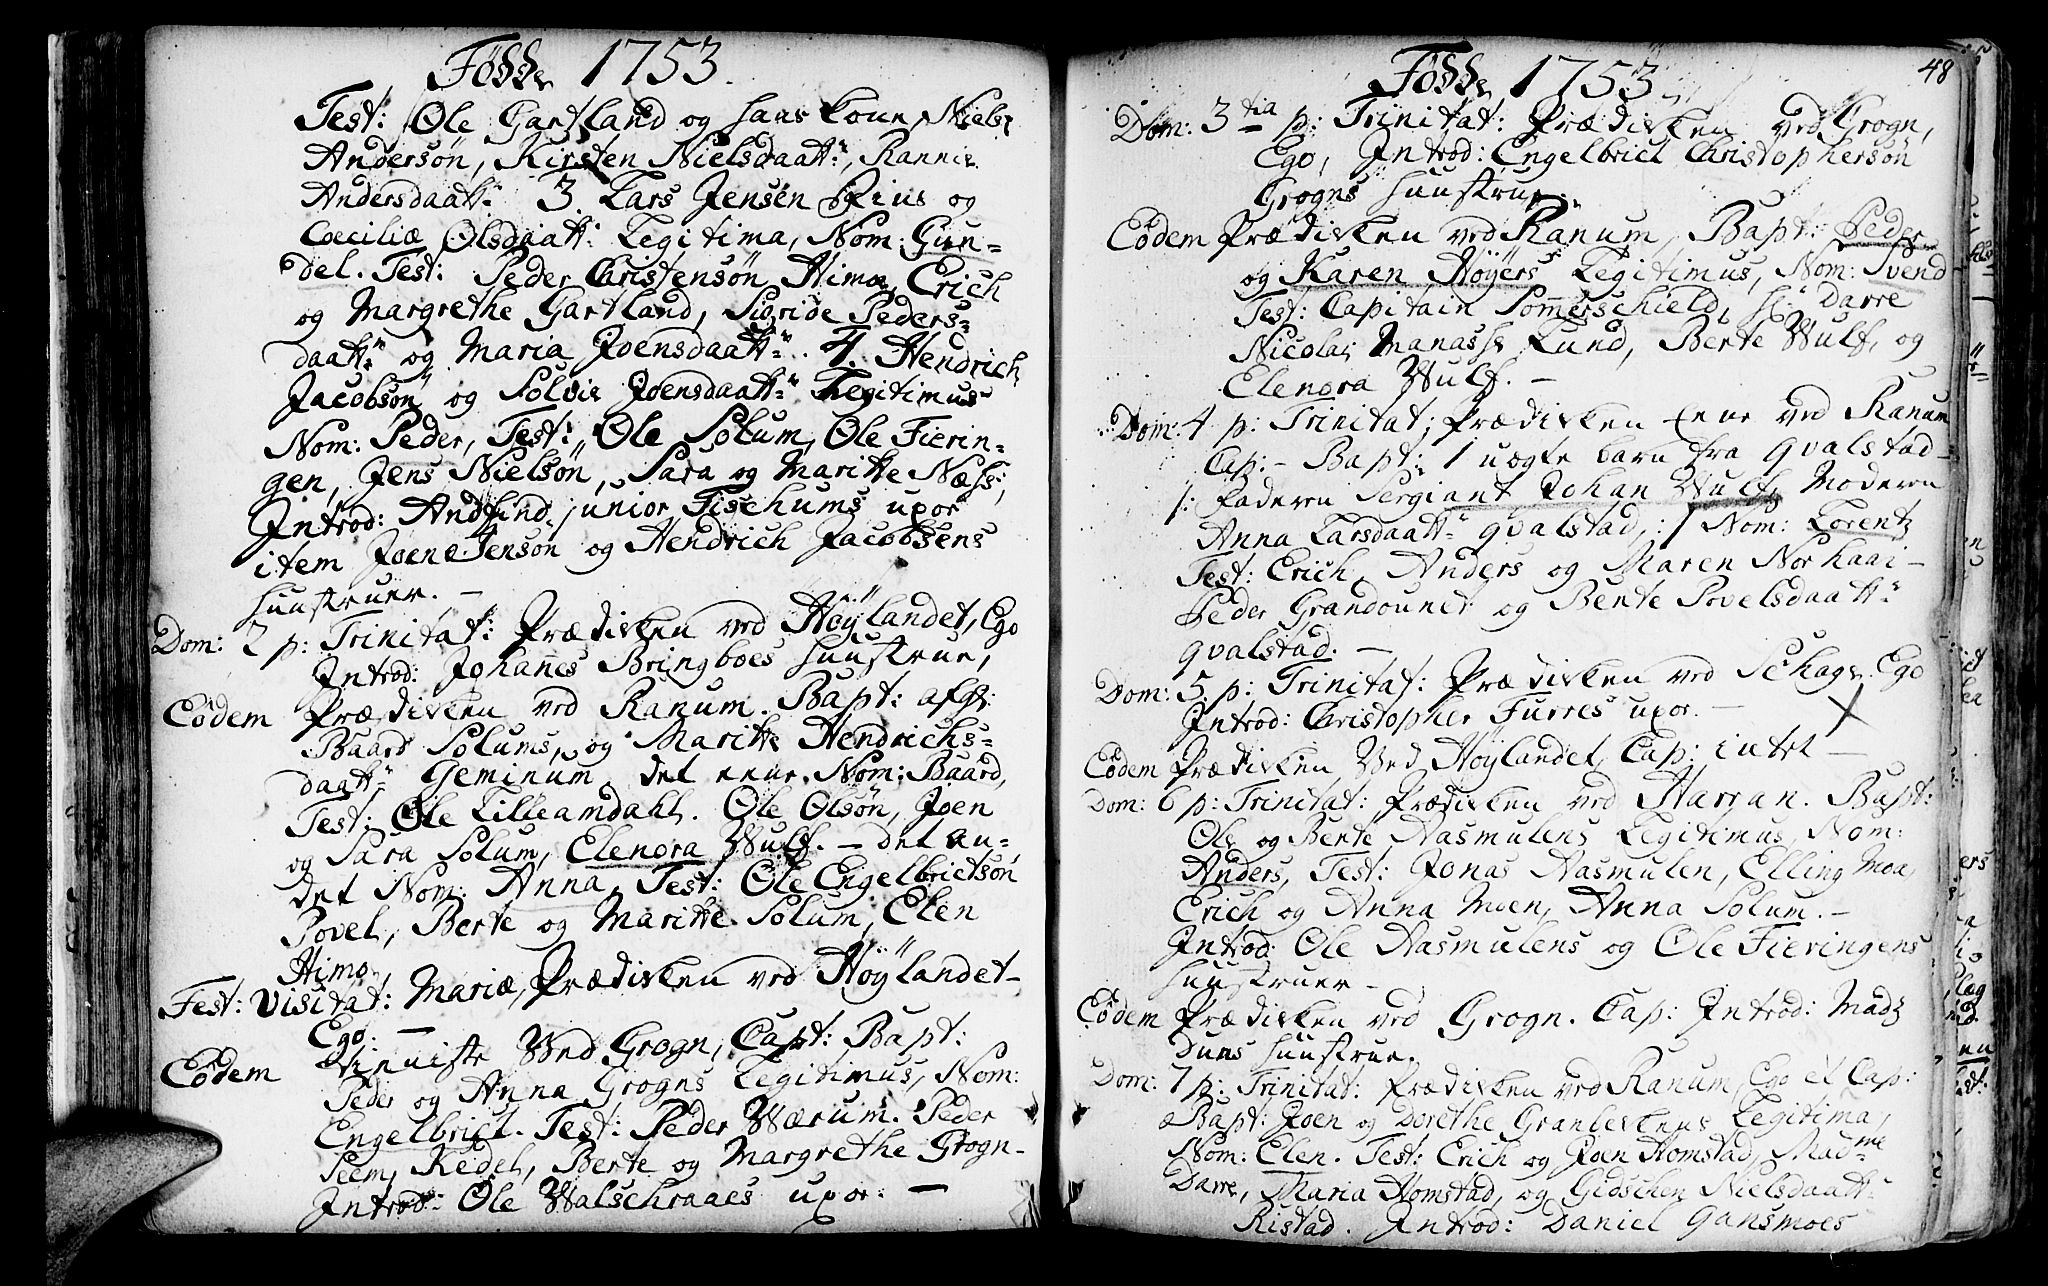 Födde 1753.
Test: Ole Gartland og hans kone, Niels
Andersön, Kirsten Nielsdaatt:, Rannie
Andersdaatt: 3. Lars Jensen Fius og
Cœciliæ Olsdaatt: Legitima, Nom: Gun-
del. Test: Peder Christensön Himo, Erich
og Margrethe Gartland, Sigride Peders-
daatt: og Maria Joensdaatt:. 4. Hendrich
Jacobsön og Solvie Joensdaatt: Legitimus
Nom: Peder, Test: Ole Solum, Ole Fierin-
gen, Jens Nielsön, Sara og Maritte Næss:,
Introd: Andfind junior Tischums uxor
item Joen Jenson og Hendrich Jacobsens
huustruer. -
Dom: 2 p: Trinitat: Prædiken ved Höylandet, Ego
Introd: Johanes Bringboes huustrue,
Eodem Prædiken ved Ranum. Bapt: afg:
Baard Solums, og Maritte Hendrichs-
daatt: Geminum, det eene. Nom: Baard,
Test: Ole Lilleamdahl. Ole Olsön, Joen
og Sara Solum, Elenora Wulf. - det an-
det Nom: Anna, Test: Ole Engelbrictsön
Povel, Berte og Maritte Solum, Elen
Himo,
Fest: Visitat: Mariæ, Prædiken ved Höylandet-
Ego. -
Eodem Tieniste Ved Grogn, Capt: Bapt:
Peder og Anna Grogns Legitimus, Nom:
Engelbrict. Test: Peder Wærum. Peder
Seem, Kedel, Berte og Margrethe Grogn-
Introd: Ole Walschraaes uxor. -
Födde 1753.
48
Dom: 3tia p: Trinitat: Prædiken ved Grogn,
Ego, Introd: Engelbrict Christophersön
Grogns huustrue.
Eodem Prædiken ved Ranum, Bapt: Peder
og Karen Höyers Legitimus, Nom: Svend
Test: Capitain Sommerschield, hr: Darre
Nicolai Manasse Lund, Berte Wulf, og
Elenora Wulf. -
Dom: 4 p: Trinitat; Prædiken Ene ved Ranum
Cap: - Bapt: 1 uægte barn fra Qvalstad-
/: Faderen Sergiant Johan Wulf, Moderen
Anna Larsdaatt: Qvalstad, :/ Nom: Lorentz
Test: Erich, Anders og Maren Norhaai-
Peder Grandounet og Bente Povelsdaatt:
Qvalstad. -
Dom: 5 p: Trinitat: Prædiken ved Schage Ego
Introd: Christopher Furres uxor. -
Eodem Prædiken Ved Höylandet, Cap: intet -
Dom: 6 p: Trinitat: Prædiken ved Harran. Bapt:
Ole og Berte Aasmulens Legitimus, Nom:
Anders, Test: Jonas Aasmulen, Elling Moe,
Erich og Anna Moen, Anna Solum. -
Introd: Ole Aasmulens og Ole Fieringens
huustruer -
Eodem Prædiken ved Grogn. Cap: Introd: Madz
Duns huustrue.
Dom: 7 p: Trinitat: Prædiken ved Ranum, Ego et Cap:
Bapt: Joen og Dorethe Granleskens Legitima,
Nom: Elen. Test: Erich og Joen Homstad, Madme
Darre, Maria Homstad, og Gidschen Nielsdaatt-
Ristad. Introd: Daniel Gansmoes